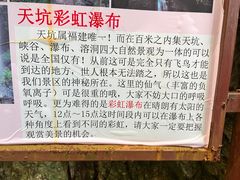 天坑彩虹瀑布
天坑属福建唯一！而在百米之内集天坑、
峡谷、瀑布、溶洞四大自然景观为一体的可以
说是全国仅有！从前这可是完全只有飞鸟才能
到达的地方，世人根本无法踏之，所以这也是
我们景区的神秘所在。这里的仙气（丰富的负
氧离子）可是很重的哦，大家不妨大口的呼吸
呼吸，更为难得的是彩虹瀑布在晴朗有太阳的
天气，12点～15点这时间段内可以在瀑布上各
种角度上看到不同的彩虹，请大家一定要把握
观赏美景的机会。